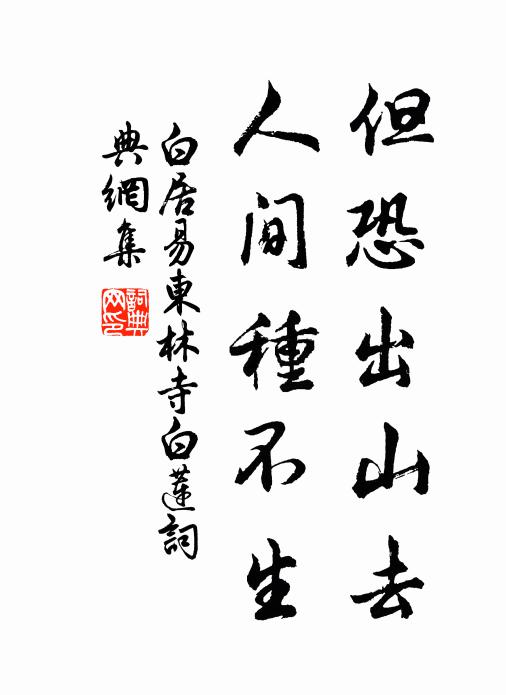 但恐出山去
人间種不生
白居易東林寺白蓮詞
典網集
詞典網印